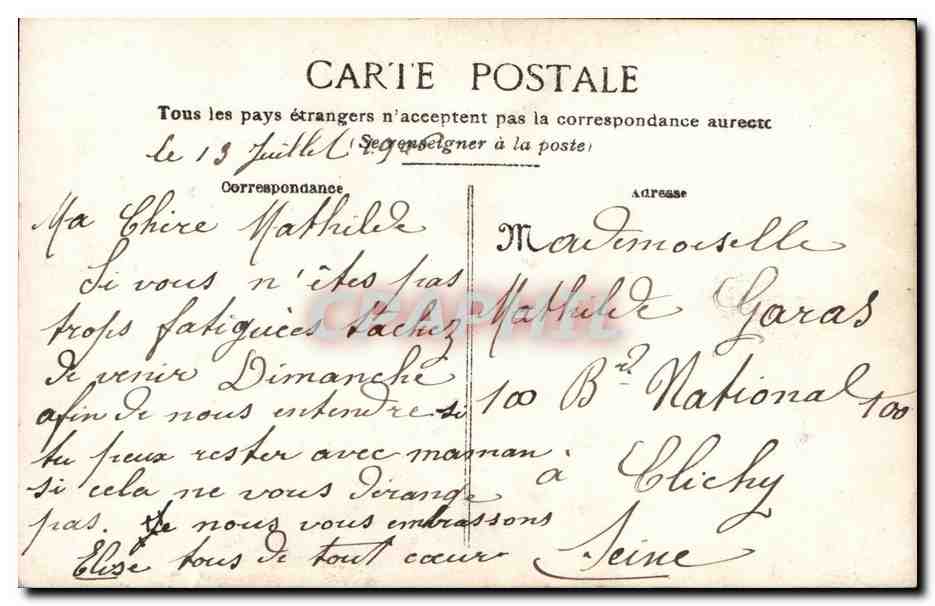 CARTE POSTALE
Tous les pays étrangers n'acceptent pas la correspondance au recto
(Se renseigner à la poste)
le 13 Juillet 190
Correspondance
Ma Chire Mathilde
Si vous n'êtes pas
trops fatiguées tachez
de venir Dimanche
afin de nous entendre si
tu peux rester avec maman.
si cela ne vous dérange
pas. Je nous vous embrassons
Elise tous de tout cœur
Adresse
Mademoiselle
Mathilde Garas
100 Bd National 100
à Clichy
Seine
CPAPHIL